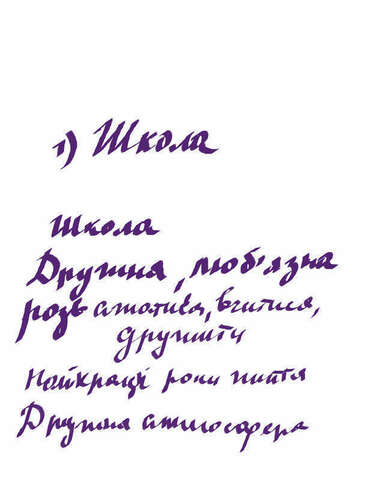 1) Школа
Школа
Дружня, люб'язна
вчитися,
дружити
Найкращі роки життя
Дружня атмосфера